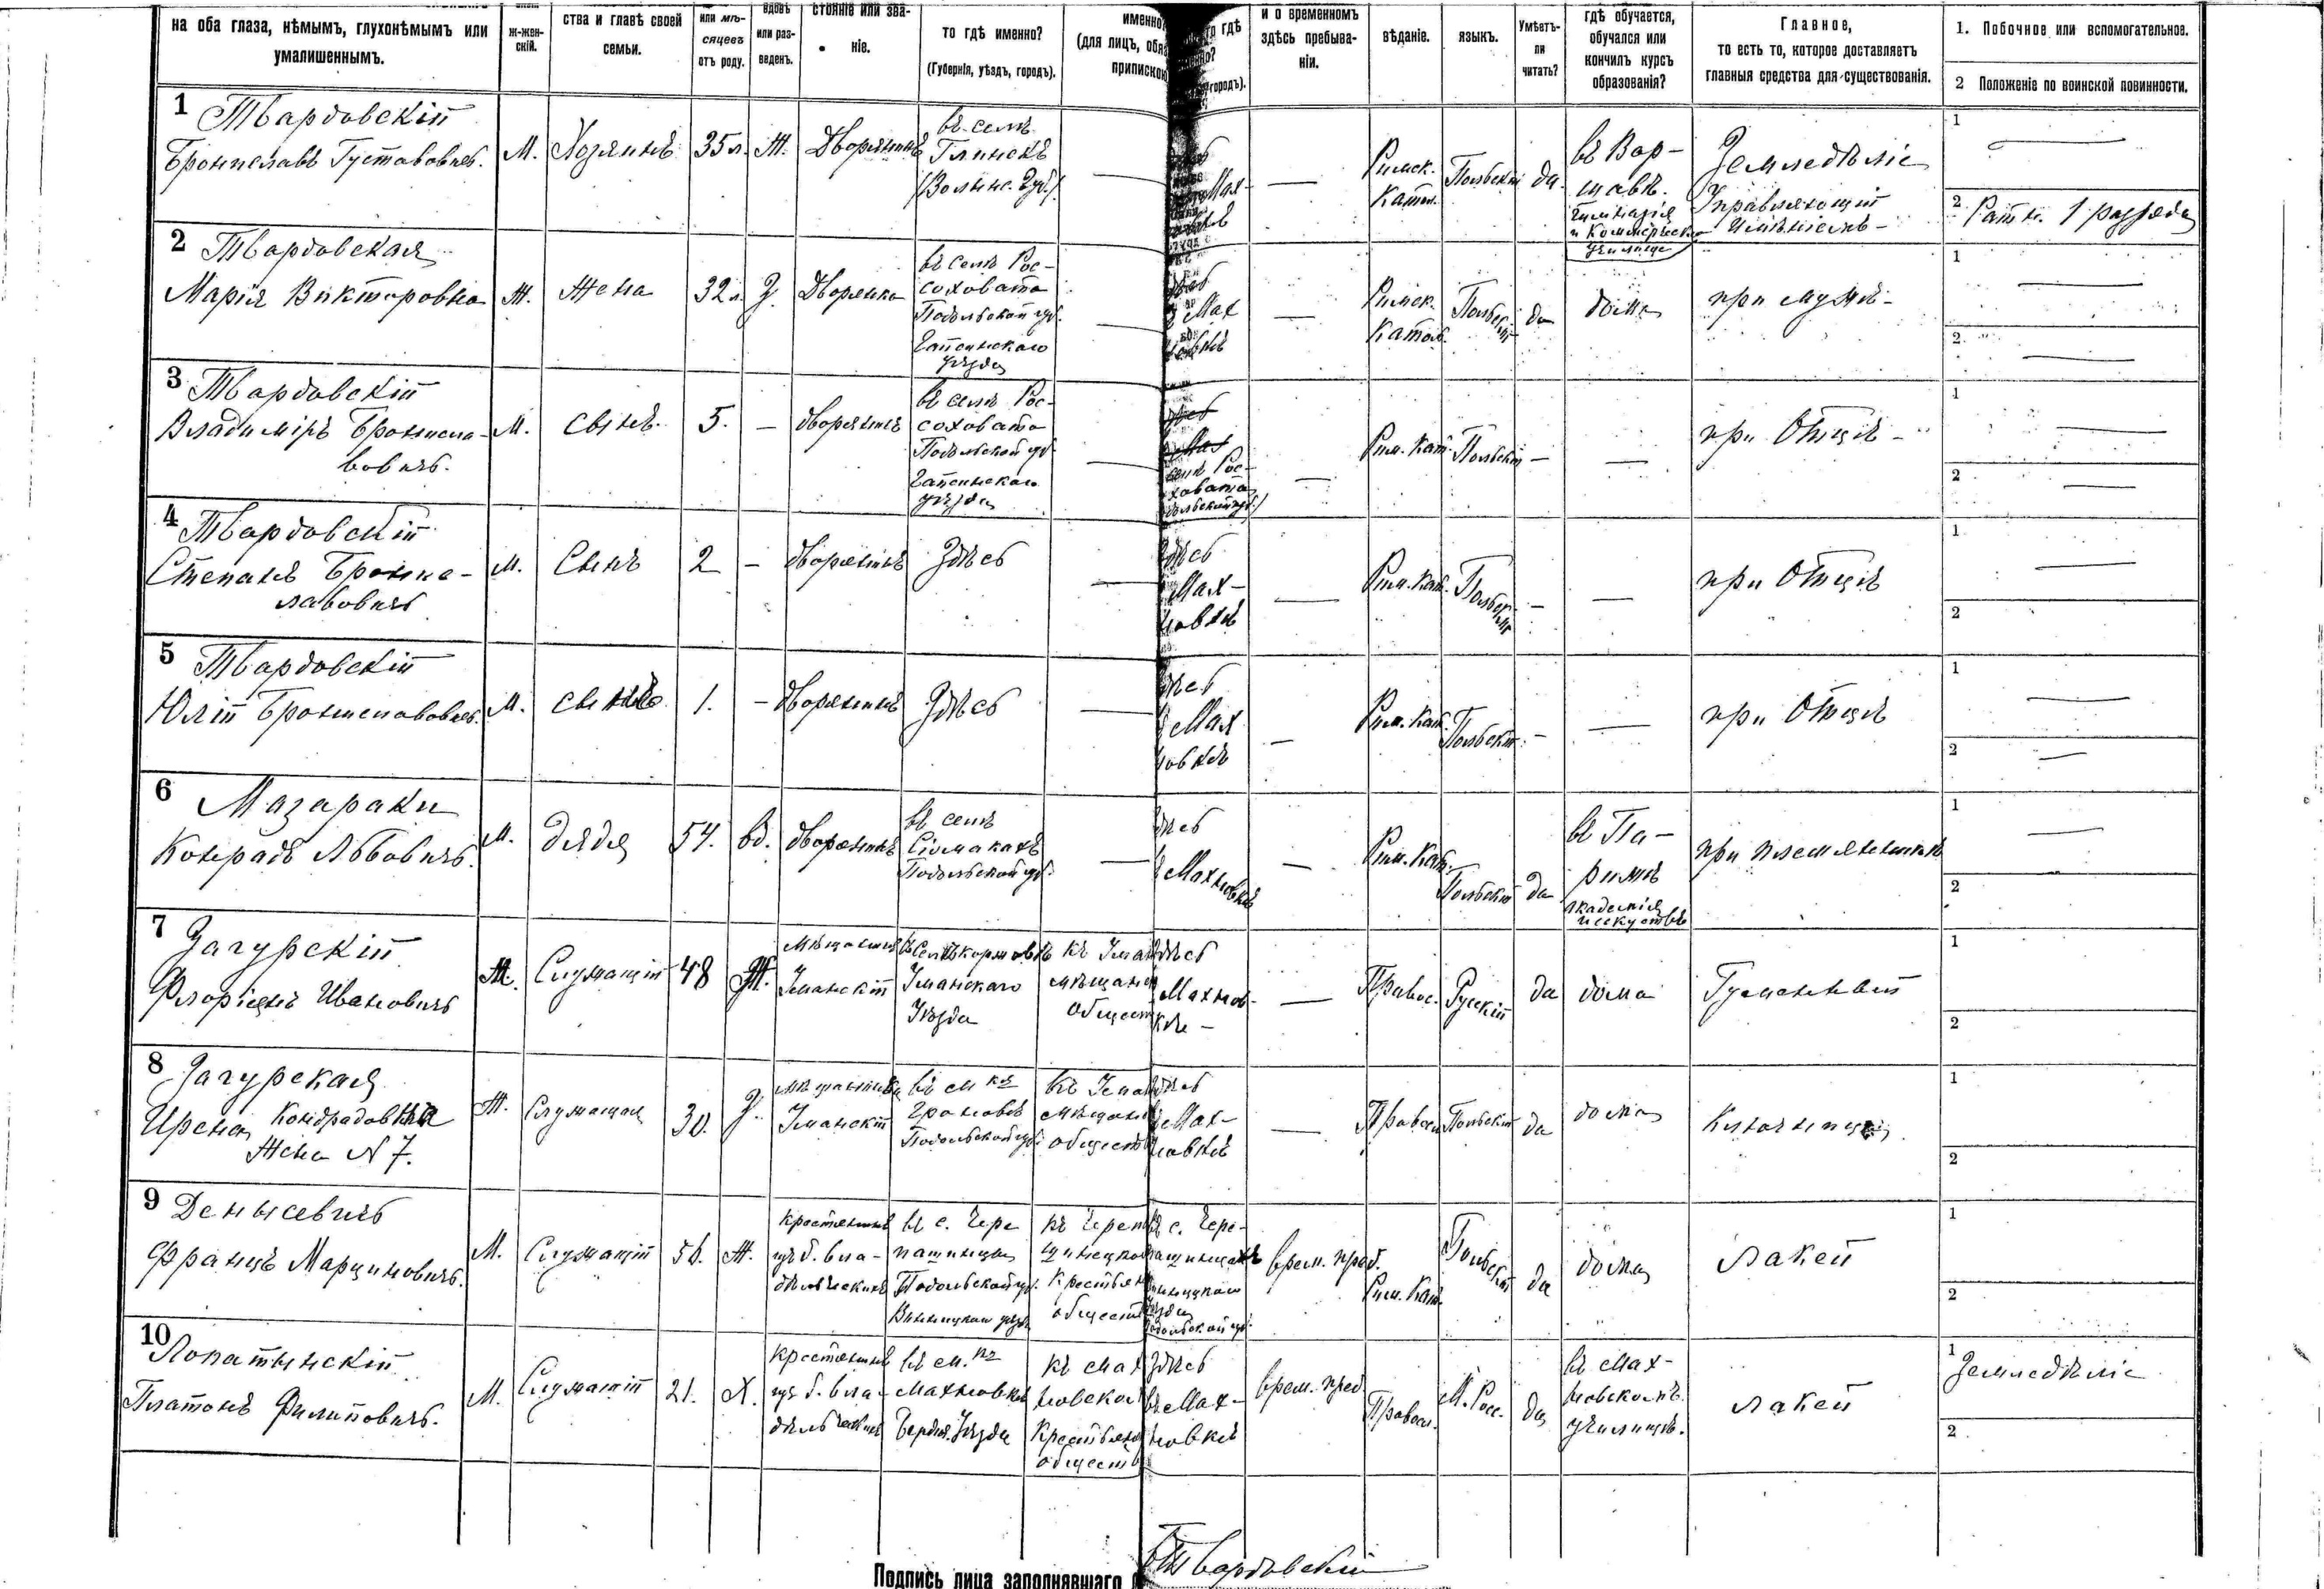 на оба глаза, нѣмымъ, глухонѣмымъ или умалишеннымъ.
ж-жен-
скій.
ства и главѣ своей
семьи.
или мѣ-
сяцевъ
отъ роду.
вдовъ
или раз-
веденъ.
стояніе или зва-
ніе.
то гдѣ именно?
(Губернія, уѣздъ, городъ).
именно
(для лицъ, обя
припискою
гдѣ
городъ).
и о временномъ
здѣсь пребыва-
ніи.
вѣданіе.
языкъ.
Умѣетъ-
ли
читать?
гдѣ обучается,
обучался или
кончилъ курсъ
образованія?
Главное,
то есть то, которое доставляетъ
главныя средства для существованія.
1. Побочное или вспомогательное.
2 Положеніе по воинской повинности.
1 Твардовскій
Брониславъ Густавовичъ.
М.
Хозяинъ
35 л.
Ж.
Дворянинъ
въ селѣ
Глинскѣ
(Волынс. Губ.)
—
Мах-
—
Римск.
Катол.
Польскій
да
въ Вар-
шавѣ.
Гимназія
и Коммерческое
училище
Земледѣліе
Управляющій
Имѣніемъ -
1 —
2 Ратн. 1 разряда
2 Твардовская
Марія Викторовна
Ж.
Жена
32 л.
З.
Дворянка
въ селѣ Рос-
соховата
Подольской губ.
Гайсинскаго
уѣзда
—
Мах
новкѣ
—
Римск.
Катол.
Польскій
да
дома
при мужѣ -
1 —
2 —
3 Твардовскій
Владиміръ Бронисла-
вовичъ.
М.
сынъ.
5.
—
дворянинъ
въ селѣ Рос-
соховата
Подольской губ.
Гайсинскаго
уѣзда
—
селѣ Рос-
ховата
дольской губ.)
—
Рим. Кат.
Польскій
—
—
при Отцѣ -
1 —
2 —
4 Твардовскій
Степанъ Брони-
лавовичъ
М.
Сынъ
2
—
дворянинъ
Здѣсь
—
Здѣсь
Мах-
новкѣ
—
Рим. Кат.
Польскій
—
—
при Отцѣ
1 —
2
5 Твардовскій
Юлій Брониславовичъ.
М.
сынъ
1.
—
дворянинъ
Здѣсь
—
Здѣсь
Мах
новкѣ
—
Рим. Кат.
Польскій
—
—
при Отцѣ
1 —
2 —
6 Мазараки
Конрадъ Львовичъ.
М.
дядя
54.
вд.
дворянинъ
въ селѣ
Сіомакахъ
Подольской губ.
—
Здѣсь
Махновкѣ
—
Рим. Кат.
Польскій
да
въ Па-
рижѣ
Академія
искуствъ
при племянникѣ
1 —
2
7 Загурскій
Флоріянъ Ивановичъ
М.
Служащій
48
Ж.
Мѣщанинъ
Уманскій
Уманскаго
Уѣзда
къ Уман
мѣщанс
общест
Здѣсь
Махнов-
кѣ -
—
Правос.
Русскій
да
дома
Гуменный
1
2
8 Загурская
Ирена Кондрадовна
Жена N 7.
Ж.
Служащая
30.
З.
Уманскій
въ м кѣ
Грановѣ
Подольской губ.
къ Уман
мѣщанс
общест
Здѣсь
Мах-
новкѣ
—
Правосл
Польскій
да
дома
Ключница
1
2
9 Денысевичъ
Францъ Марциновичъ.
М.
Служащій
56.
Ж.
крестянинъ
изъ б. вла-
дѣльческихъ
въ с. Чере
пашинцы
Подольской губ.
Винницкаго уѣзда
къ Череп
шинецко
крестьян
общест
въ с. Чере-
пашинцахъ
Винницкаго
уѣзда
Подольской губ.
врем. преб.
Рим. Кат.
Польскій
да
дома
лакей
1
2
10 Лопатынскій
Платонъ Филиповичъ.
М.
Служащій
21.
Х.
крестянинъ
изъ б. вла-
дѣльческихъ
въ м. кѣ
Махновкѣ
Бердич. Уѣзда
къ Мах
новско
Крестьянс
общест
Здѣсь
въ Мах-
новкѣ
врем. преб
Правосл.
М. Рос.
да
въ Мах-
новскомъ
училищѣ.
лакей
1 Земледѣліе
2
Подпись лица заполнявшаго
Твардовскій